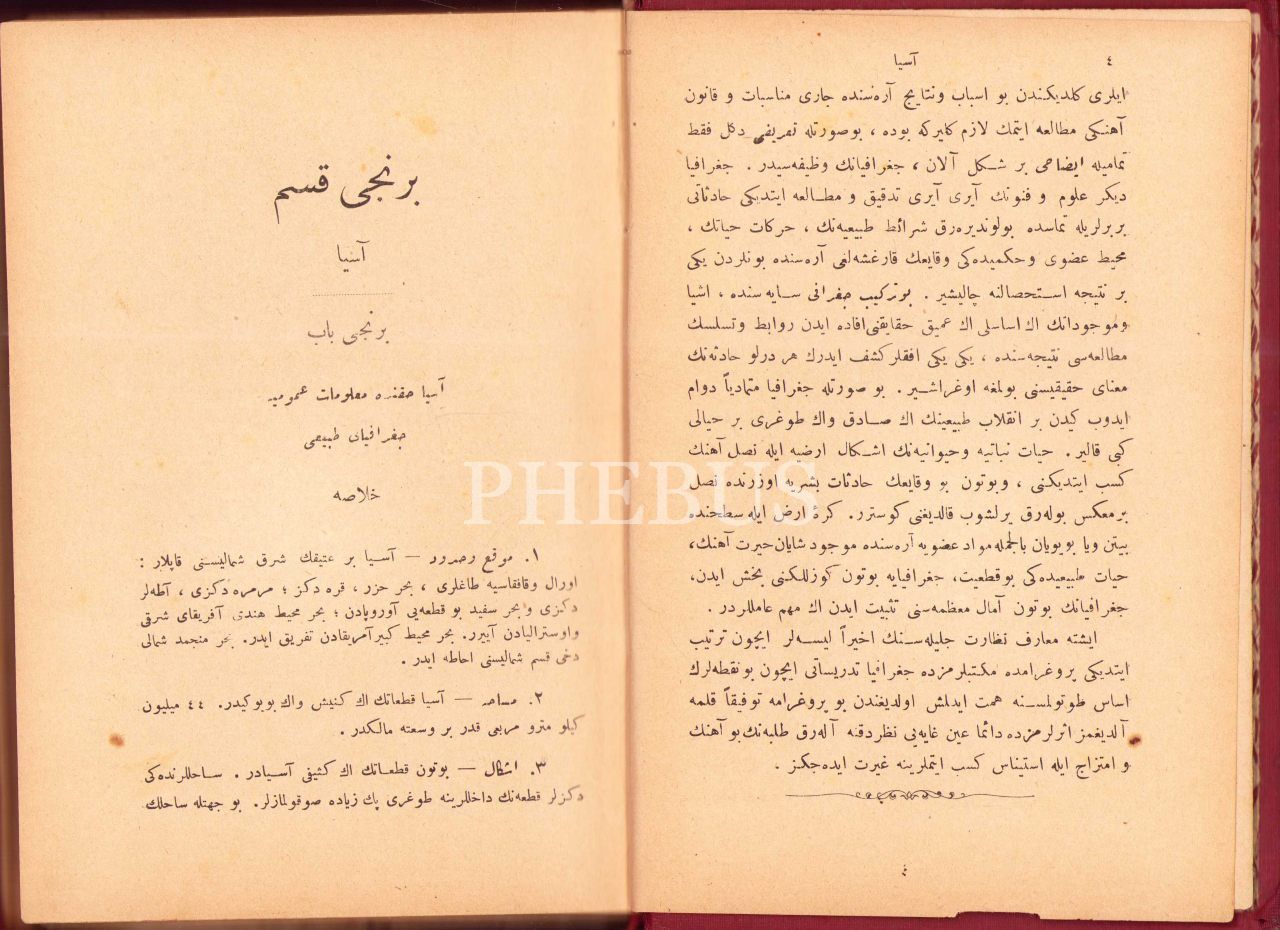 ٤
آسیا
ایلری كلدیكندن بو اسباب ونتایج آره‌سنده جاری مناسبات و قانون
آهنكی مطالعه ایتمك لازم كلیركه بوده ، بوصورتله تعریفی دكل فقط
تمامیله ایضاحی بر شكل آلان ، جغرافیانك وظیفه‌سیدر . جغرافیا
دیكر علوم و فنونك آیری آیری تدقیق و مطالعه ایتدیكی حادثاتی
بربرلریله تماسده بولوندیره‌رق شرائط طبیعیه‌نك ، حركات حیاتك ،
محیط عضوی وحكمیده‌كی وقایعك قارغشه‌لغی آره‌سنده بونلردن یكی
بر نتیجه استحصالنه چالیشیر . بو تركیب جغرافی سایه سنده ، اشیا
وموجوداتك اك اساسلی اك عمیق حقایقنی افاده ایدن روابط وتسلسك
مطالعه‌سی نتیجه‌سنده ، یكی یكی افقلر كشف ایدرك هر درلو حادثه‌نك
معنای حقیقیسنی بولمغه اوغراشیر. بو صورتله جغرافیا متمادیاً دوام
ایدوب كیدن بر انقلاب طبیعینك اك صادق واك طوغری بر حیالی
كبی قالبر . حیات نباتیه وحیوانیه‌نك اشكال ارضیه ایله نصل آهنك
كسب ایتدیكنی ، وبوتون بو وقایعك حادثات بشریه اوزرنده نصل
برمعكس بوله‌رق یرلشوب قالدیغنی كوسترر. كرهٔ ارض ایله سطحنده
بیتن ویا بویویان بالجمله مواد عضویه آره‌سنده موجود شایان حیرت آهنك،
حیات طبیعیده‌كی بوقطعیت، جغرافیایه بوتون كوزللكنی بخش ایدن،
جغرافیانك بوتون آمال معظمه‌سنی تثبیت ایدن اك مهم عامللردر .
ایشته معارف نظارت جلیله‌سنك اخیراً لیسه‌لر ایچون ترتیب
ایتدیكی پروغرامده مكتبلرمزده جغرافیا تدریساتی ایچون بونقطه‌لرك
اساس طوتولمسنه همت ایدلمش اولدیغندن بو پروغرامه توفیقاً قلمه
آلدیغمز اثرلرمزده دائما عین غایه‌یی نظردقته آله‌رق طلبه‌نك بو آهنك
و امتزاج ایله استیناس كسب ایتملرینه غیرت ایده‌جكز .
٤
برنجی قسم
آسیا
برنجی باب
آسیا حقنده معلومات عمومیه
جغرافیای طبیعی
خلاصه
١. موقع وحدود — آسیا بر عتیقك شرق شمالیسنی قاپلار :
اورال وقافقاسیه طاغلری ، بحر حزر ، قره دكز ؛ مرمره دكزی ، آطه‌لر
دكزی و بحر سفید بو قطعه‌یی آوروپادن ؛ بحر محیط هندی آفریقای شرقی
واوسترالیادن آییرر. بحر محیط كبیر آمریقادن تفریق ایدر. بحر منجمد شمالی
دخی قسم شمالیسنی احاطه ایدر .
٢. مساحه — آسیا قطعاتك اك كنیش واك بویوكیدر. ٤٤ میلیون
كیلو مترو مربعی قدر بر وسعته مالكدر .
٣. اشكال — بوتون قطعاتك اك كثیفی آسیادر . ساحللرنده‌كی
دكزلر قطعه‌نك داخللرینه طوغری پك زیاده صوقولمازلر. بو جهتله ساحلك
PHEBUS